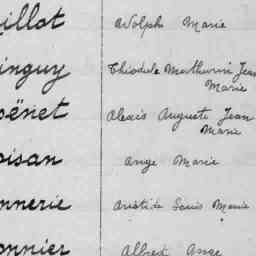 illot Adolphe Marie
inguy Théodule Mathurin Jean
Marie
oënet Alexis Auguste Jean
Marie
oisan Ange Marie
nnerie Aristide Louis Marie
onnier Albert Ange